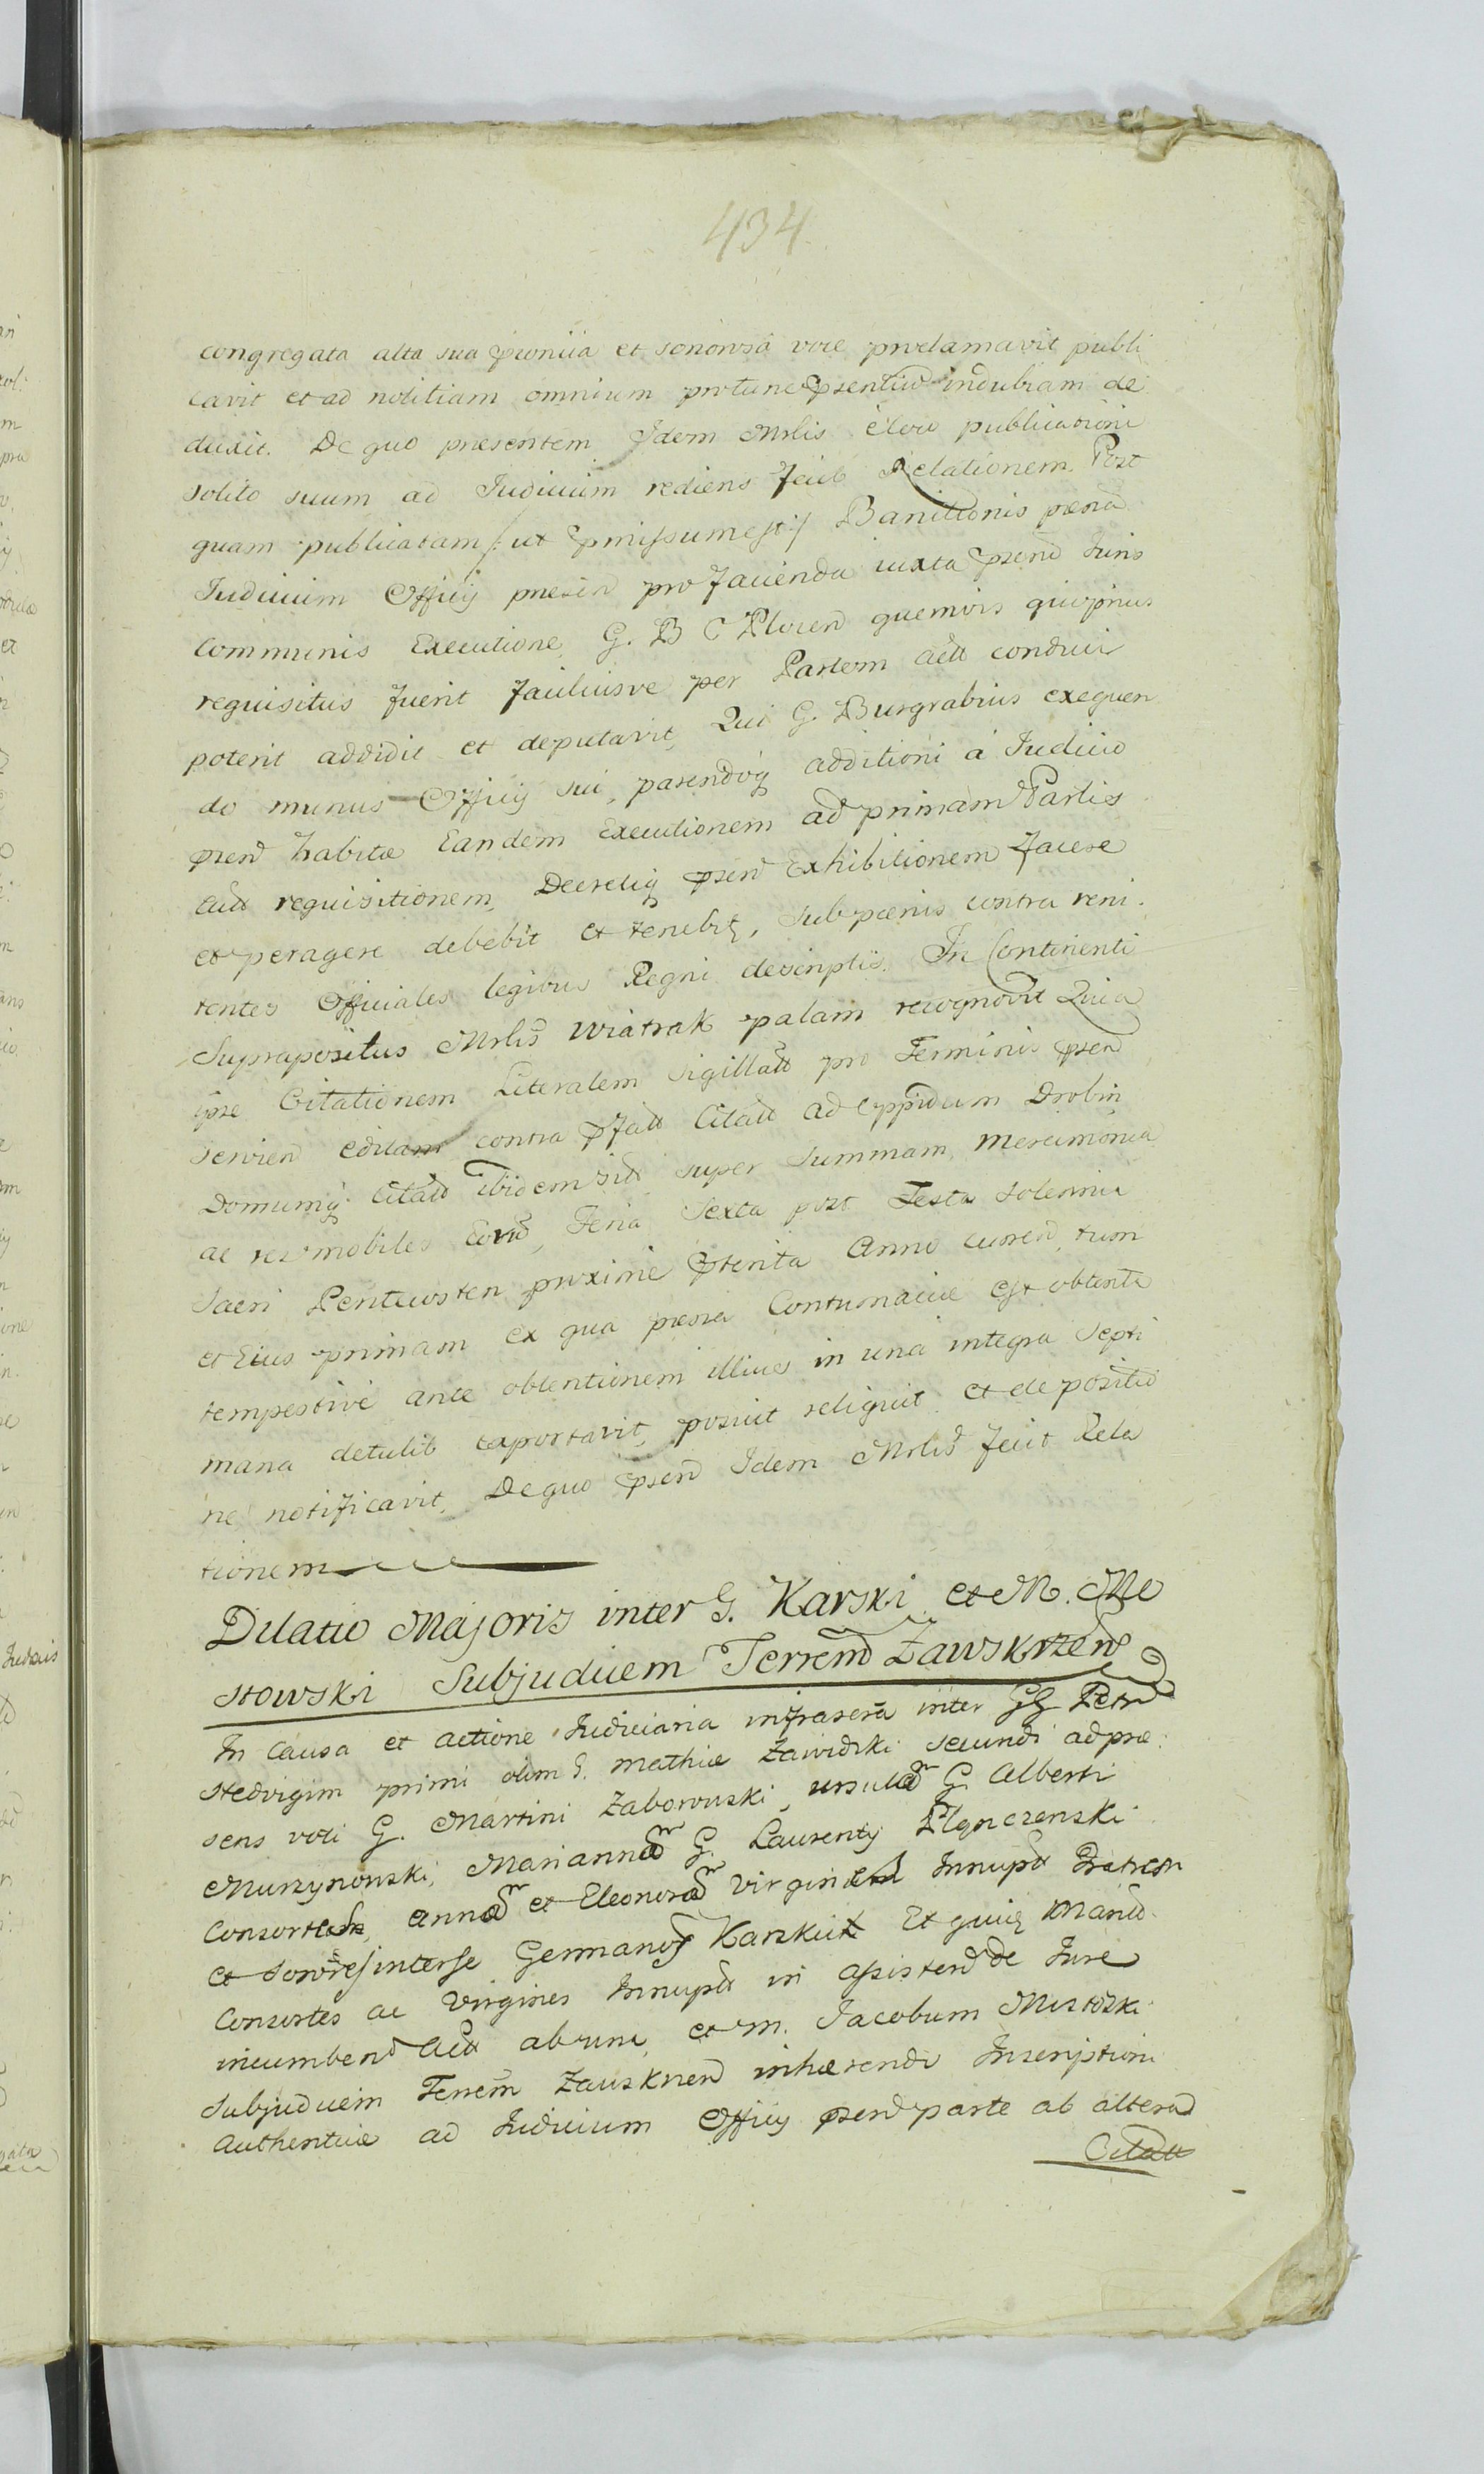 434
congregata alta sua proniia et sonorosa voce proclamavit publi
cavit et ad notitiam omnium protunc psentiu indubiam de
duxit. De quo praesentem Idem Mrlis eloco publicationi
solito suum ad Iudicium rediens fecit Relationem. Post
quam publicatam /: ut pmissumest :/ Banitionis poena
Iudicium Officij praesen pro facienda iuxta psend Iuris
Communis Executione, G. B C Plocen quemvis qui prius
requisitus fuerit faciliusve per Partem Act conduci
poterit addidit et deputavit, Qui G. Burgrabius exequen
do munus Officij sui, parendoq additioni á Iudicio
psend habitae Eandem Executionem ad primam Partis
Act requisitionem, Decretiq psend Exhibitionem facere
et peragere debebit et tenebit, sub poenis contra reni
tentes Officiales legibus Regni descriptis. In Continenti
Suprapositus Mrlis Wiatrak palam recognovit Quia
ipse Citationem Literalem Sigillatt pro Terminis psend
servien editam contra pfatt Citatt ad oppidum Drobin
Domumq Citatt ibidem sitt super Summam, Mercimonia
ac res mobiles Eoru, Feria Sexta post Festa Solennia
Sacri Pentecosten proxime pterita Anno curren, tum
et Eius primam ex qua poena Contumaciae est obtenta
tempestive ante obtentionem illius in una integra Septi
mana detulit reportavit, posuit reliquit et de positio
ne notificavit, De quo psend Idem Mrlis fecit Rela
tionem
Dilatio Majoris inter G. Karski et M. Me
stowski Subjudicem Terrem Zawskrzen
In Causa et actione Iudiciaria infrascra inter GG Petr
Hedvigim primi olim G. Mathiae Zawidzki secundi ad prae
sens voti G. Martini Zaborowski, Ursulam G Alberti
Murzynowski, Mariannam G. Laurentij Płączenski
Consortes, Annam et Eleonoram Virgines Innupt Fratrem
et Sorores inter se Germanos Karskie Et quidq Marito
Consortes ac Virgines Innupt in assistend de Iure
incumbend Act ab una, et M. Jacobum Mistoski
Subjudicem Terrem Zauskrzen inhaerendo Inscriptioni
Authenticae ad Iudicium Officij psend parte ab altera
Citatt